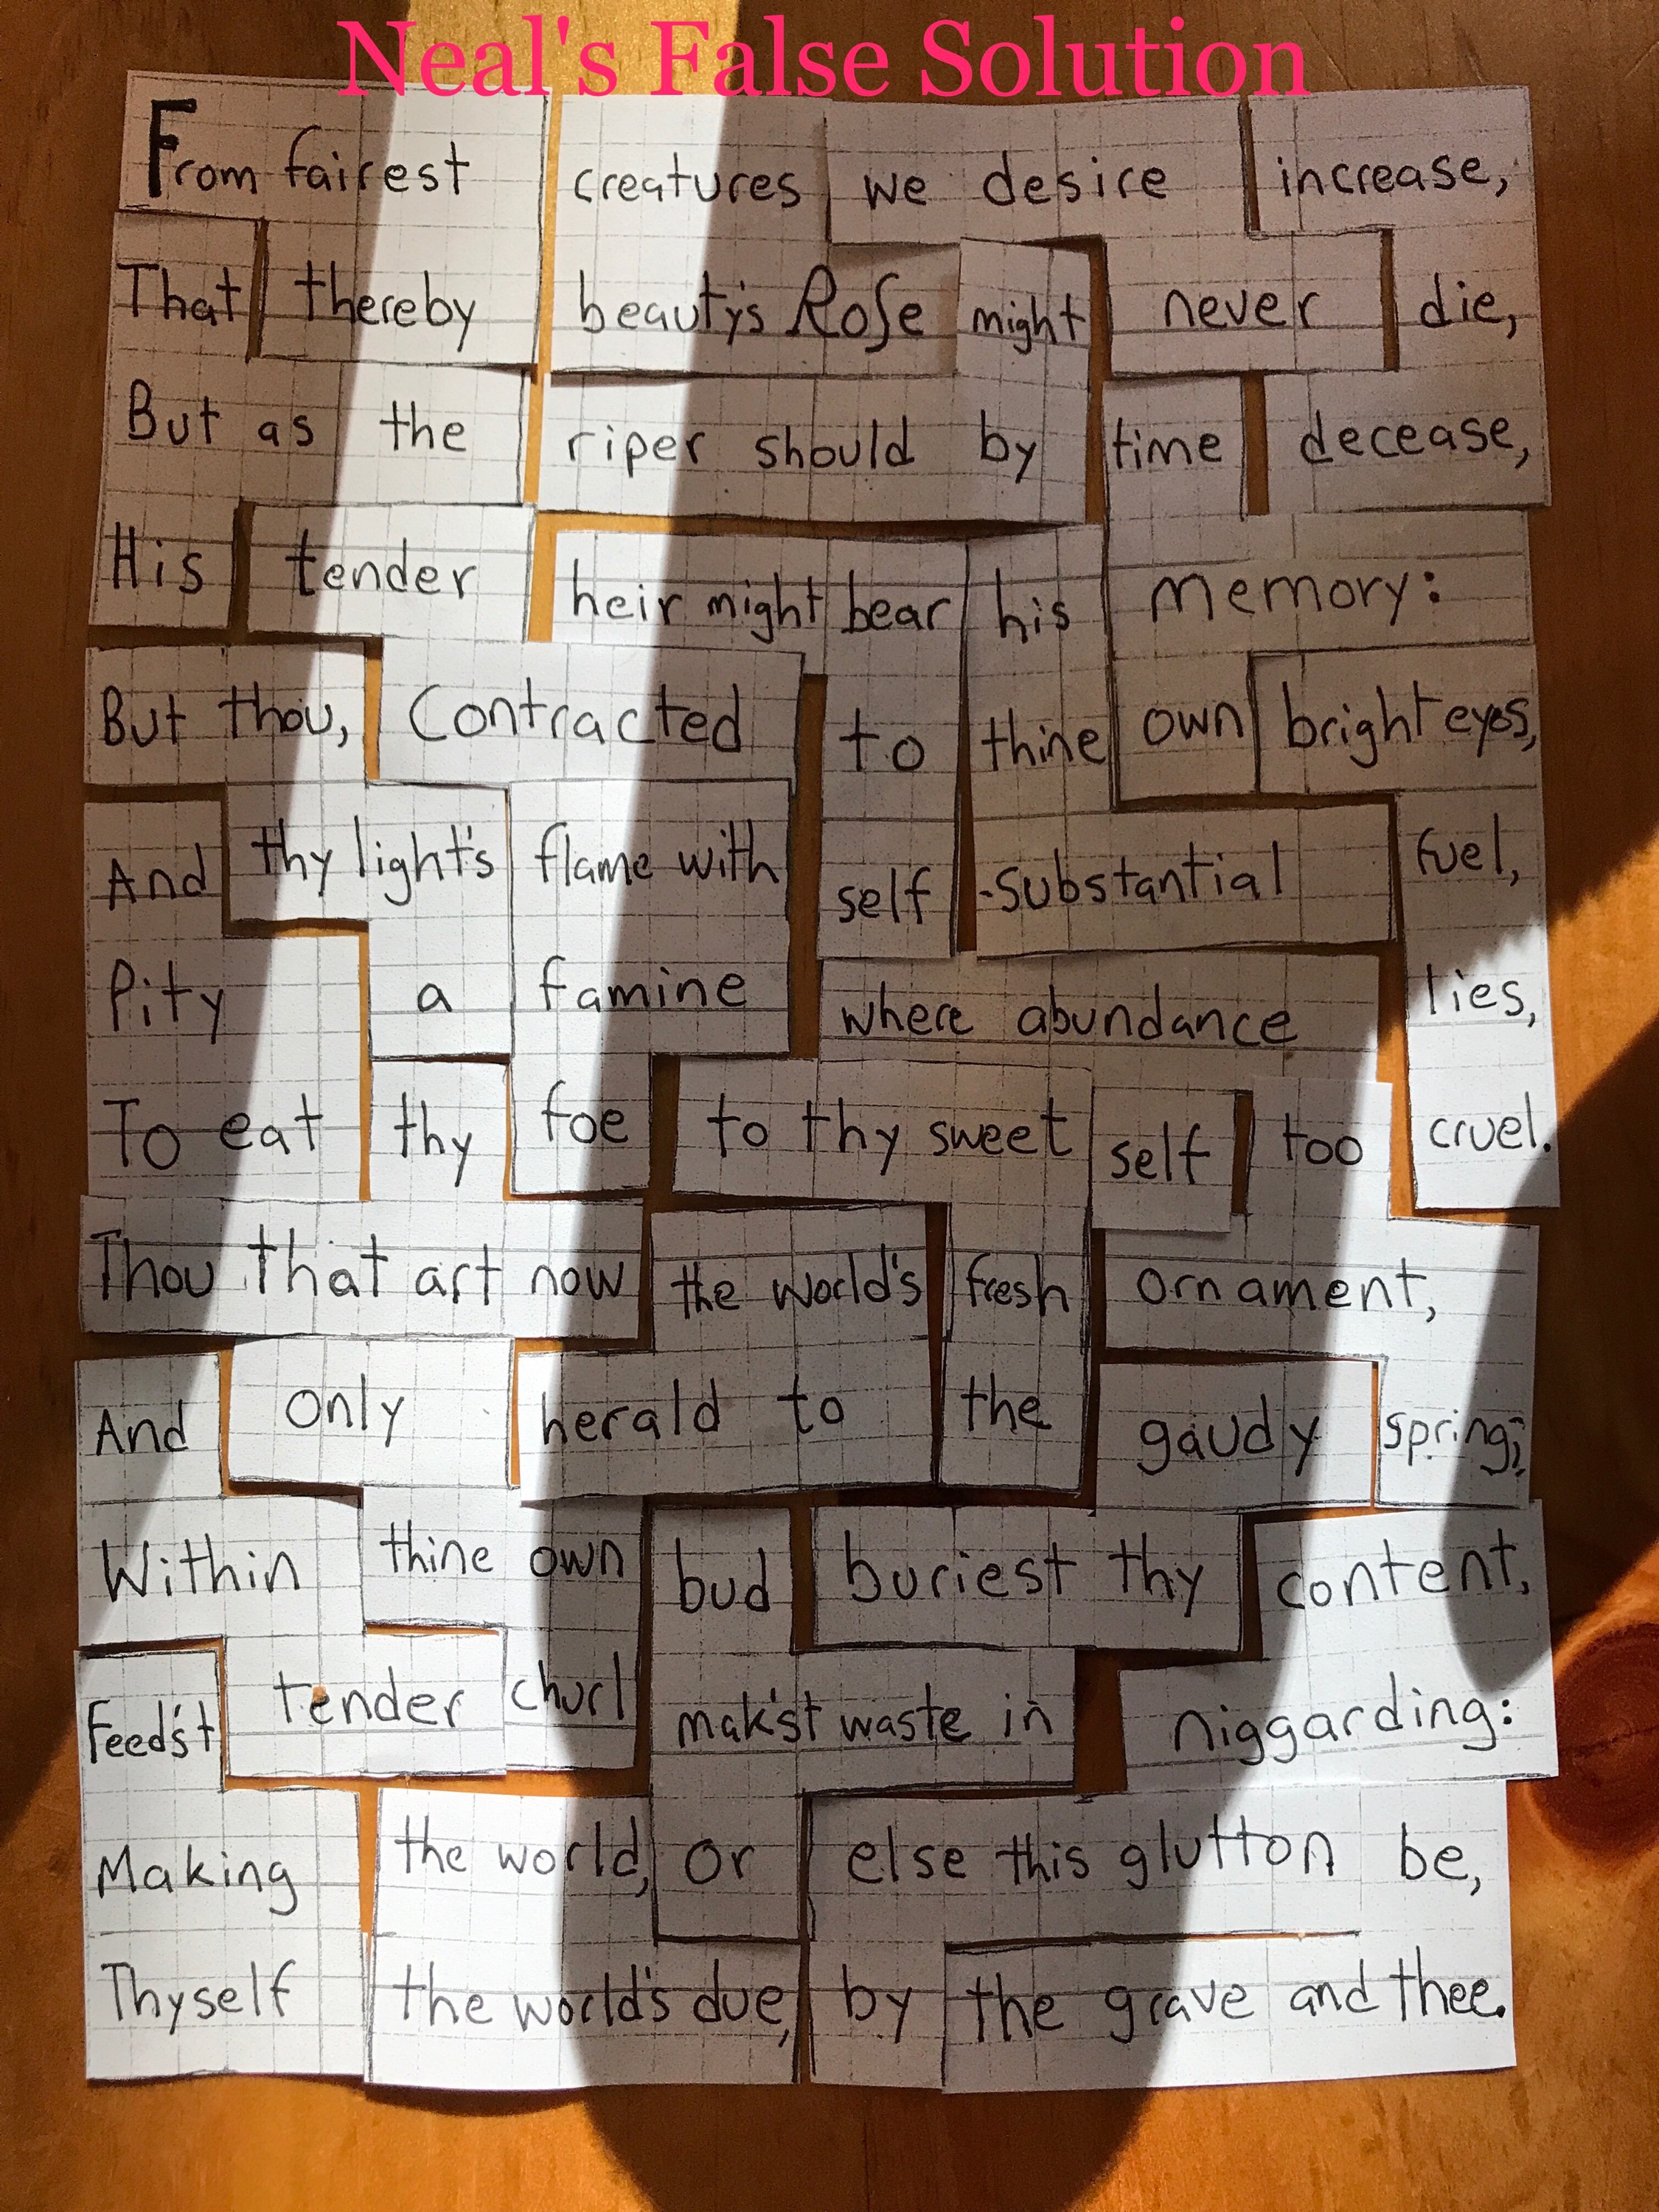 Neal's False Solution
From fairest creatures we desire increase,
That thereby beauty's Rose might never die,
But as the riper should by time decease,
His tender heir might bear his memory:
But thou, Contracted to thine own bright eyes,
And thy light's flame with self-substantial fuel,
Pity a famine where abundance lies,
To eat thy foe to thy sweet self too cruel.
Thou that art now the world's fresh ornament,
And only herald to the gaudy spring;
Within thine own bud buriest thy content,
Feed'st tender churl mak'st waste in niggarding:
Making the world, or else this glutton be,
Thyself the world's due, by the grave and thee.